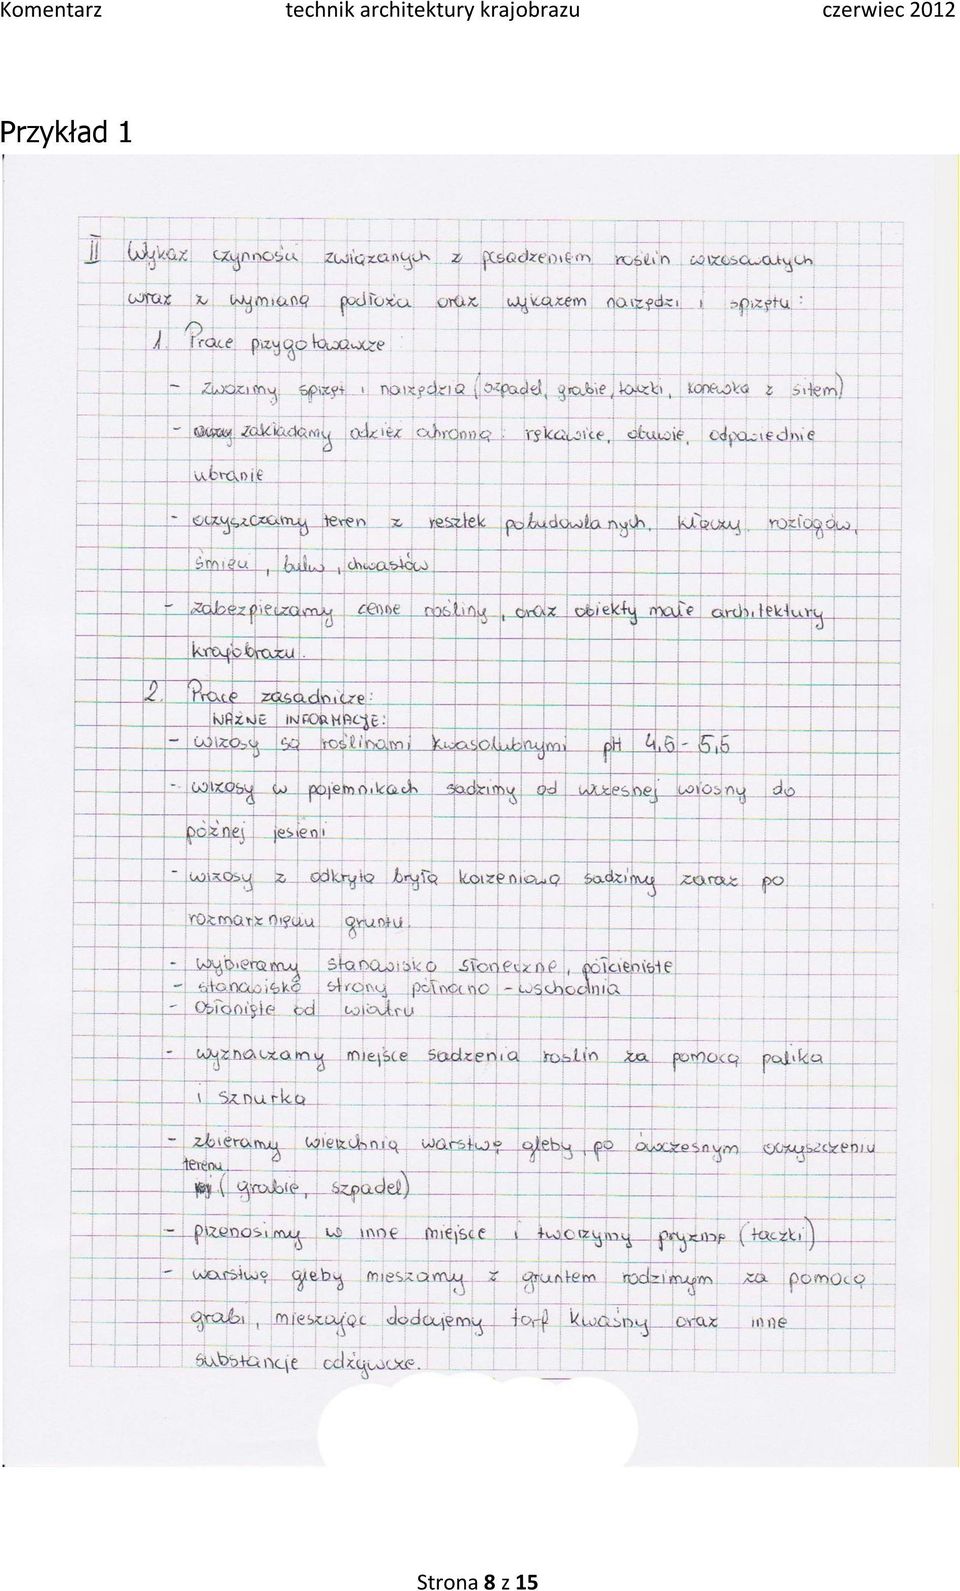 Komentarz technik architektury krajobrazu czerwiec 2012
Przykład 1
II Wykaz czynności związanych z posadzeniem roślin wrzosowatych
wraz z wymianą podłoża oraz wykazem narzędzi i sprzętu:
1. Prace przygotowawcze
- Zwozimy sprzęt i narzędzia (szpadel, grabie, taczki, konewka z sitem)
- zakładamy odzież ochronną: rękawice, obuwie, odpowiednie
ubranie
- oczyszczamy teren z resztek pobudowlanych, kłęczy, rozłogów,
śmieci, bulw, chwastów
- zabezpieczamy cenne rośliny, oraz obiekty małe architektury
krajobrazu.
2. Prace zasadnicze:
WAŻNE INFORMACJE:
- wrzosy są roślinami kwasolubnymi pH 4,5 - 5,5
- wrzosy w pojemnikach sadzimy od wczesnej wiosny do
późnej jesieni
- wrzosy z odkrytą bryłą korzeniową sadzimy zaraz po
rozmarznięciu gruntu.
- wybieramy stanowisko słoneczne, półcieniste
- stanowisko strony północno - wschodnia
- osłonięte od wiatru
- wyznaczamy miejsce sadzenia roslin za pomocą palika
i sznurka
- zbieramy wierzchnią warstwę gleby, po ówczesnym oczyszczeniu
terenu.
(grabie, szpadel)
- przenosimy w inne miejsce i tworzymy pryzmę (taczki)
- warstwę gleby mieszamy z gruntem rodzimym za pomocą
grabi, mieszając dodajemy torf kwaśny oraz inne
substancje odżywcze.
Strona 8 z 15